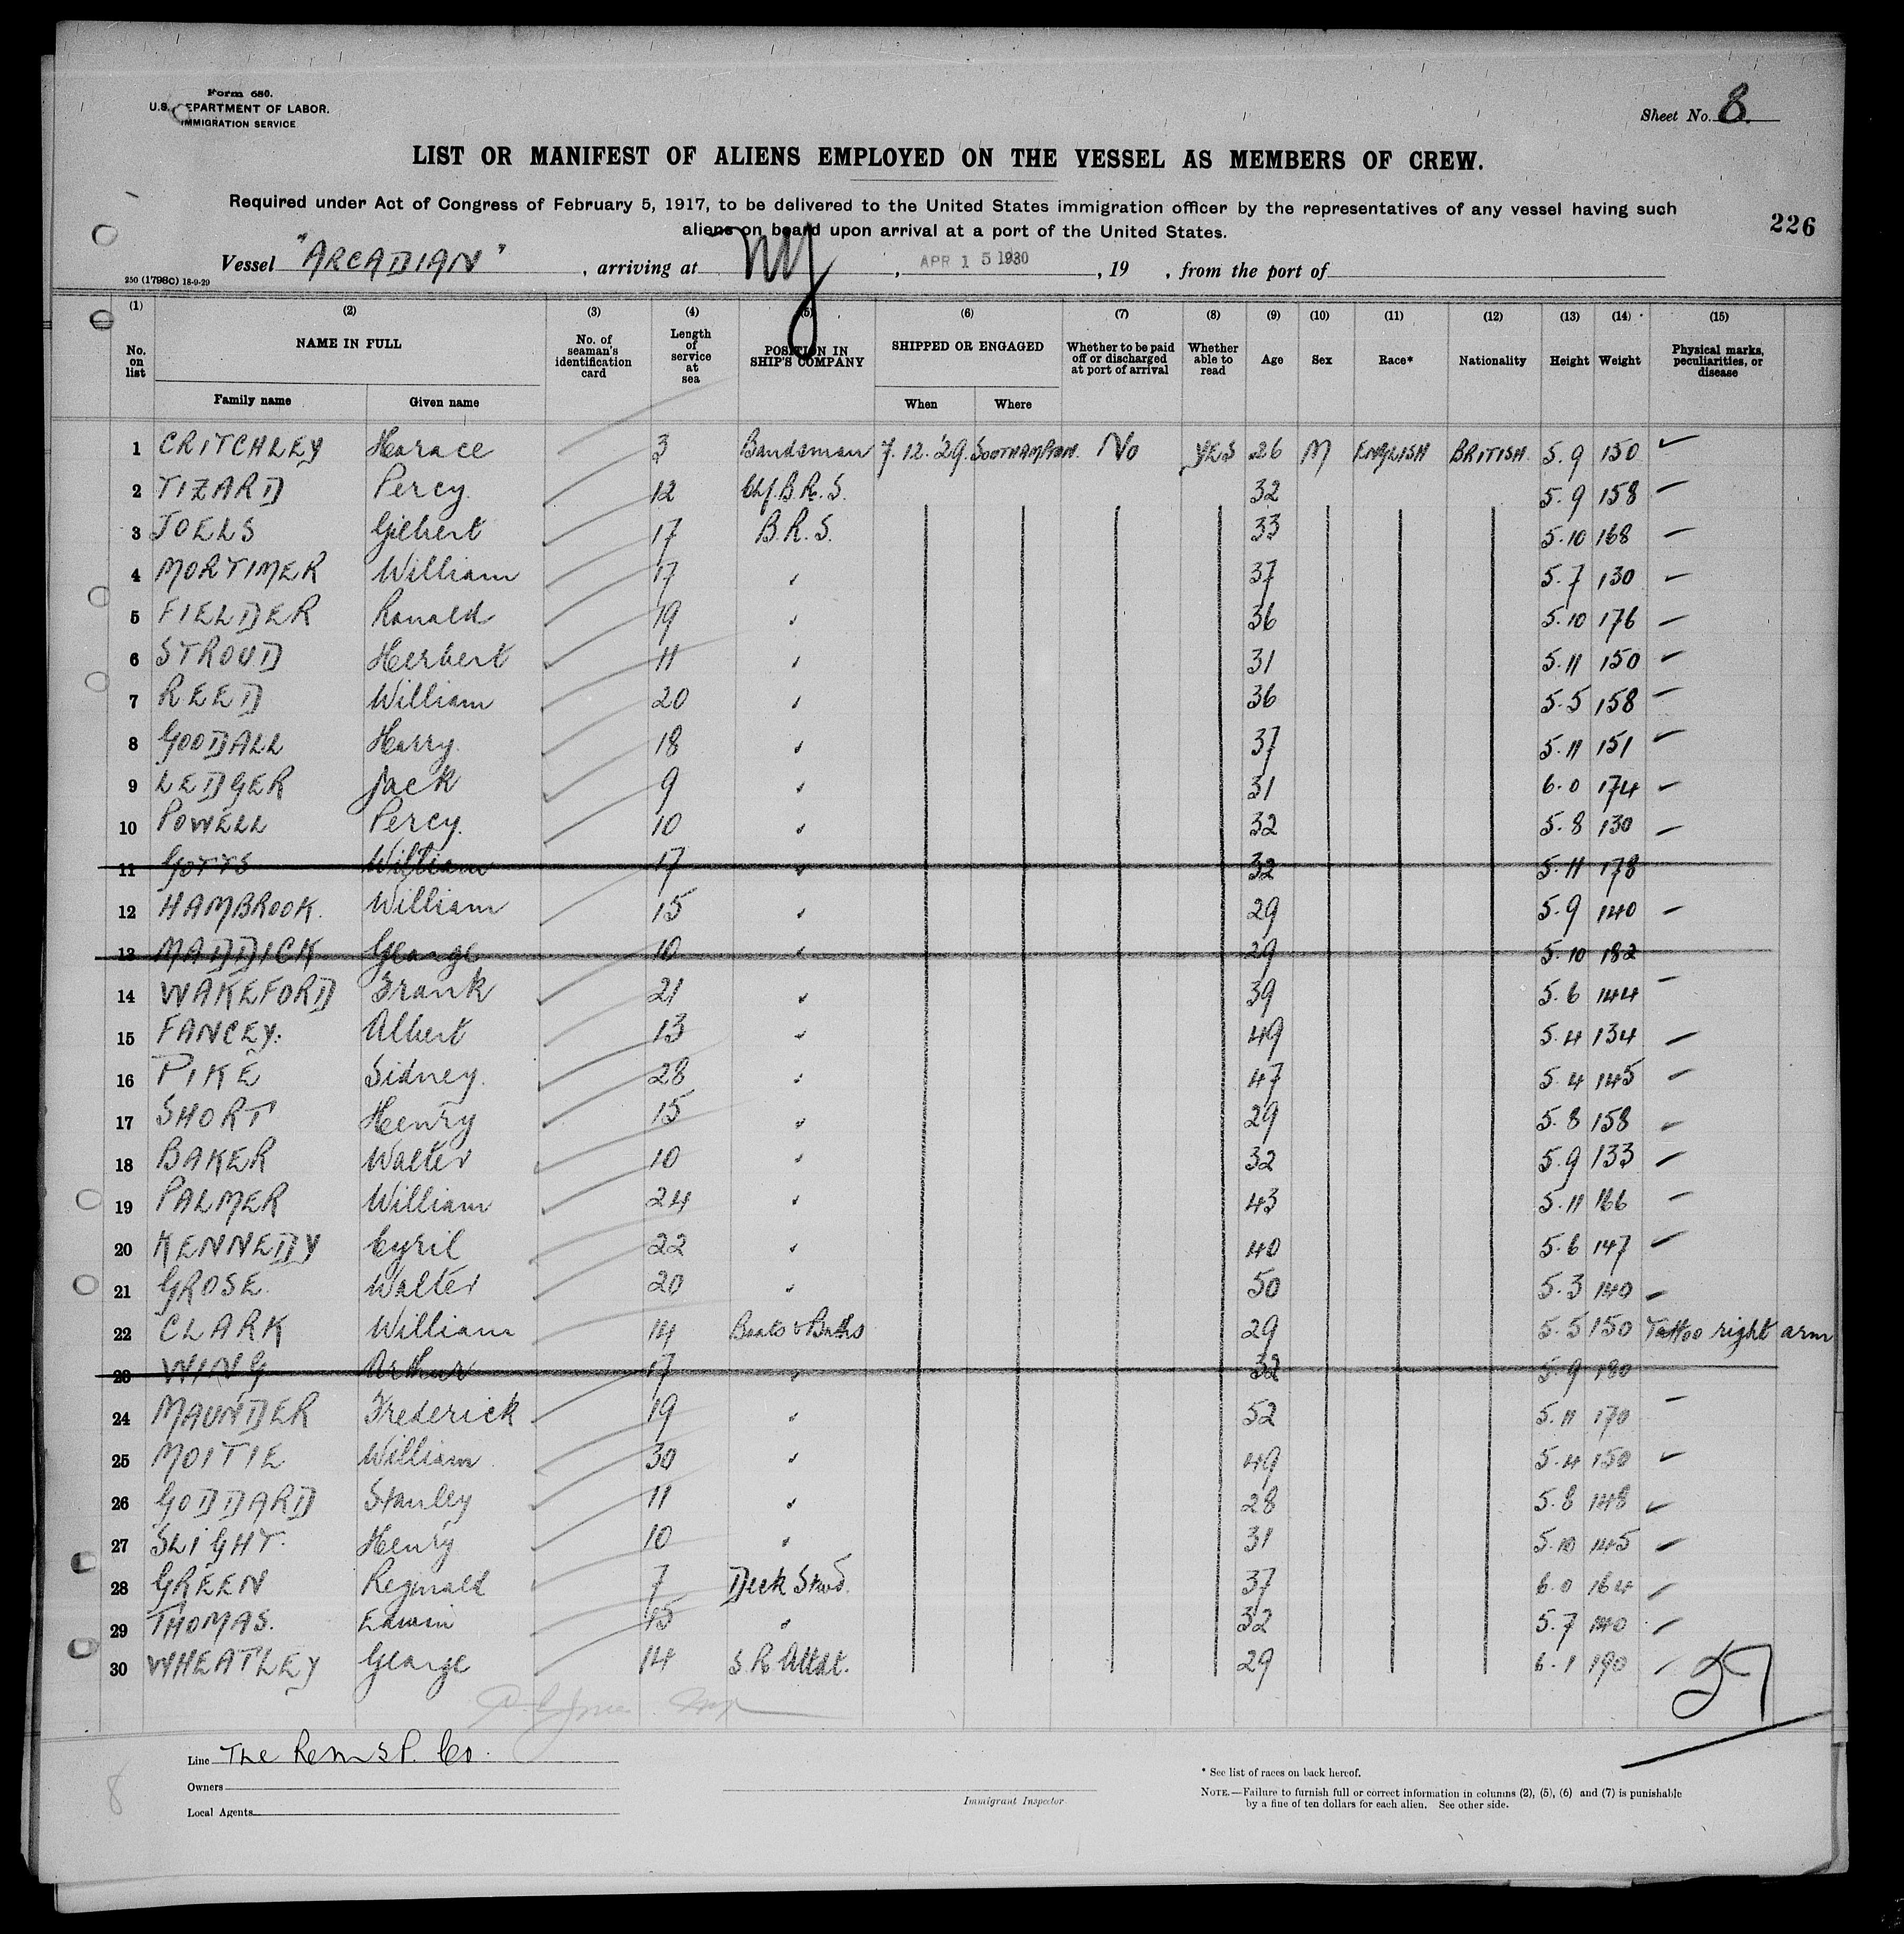 Form 686.
U.S. DEPARTMENT OF LABOR.
IMMIGRATION SERVICE
Sheet No. 8.
LIST OR MANIFEST OF ALIENS EMPLOYED ON THE VESSEL AS MEMBERS OF CREW.
Required under Act of Congress of February 5, 1917, to be delivered to the United States immigration officer by the representatives of any vessel having such
aliens on board upon arrival at a port of the United States.
226
Vessel "ARCADIAN", arriving at NY, APR 15 1930, 19 , from the port of
250 (1798C) 18-9-29
(1) (2) (3) (4) (5) (6) (7) (8) (9) (10) (11) (12) (13) (14) (15)
No. on list NAME IN FULL No. of seaman's identification card Length of service at sea POSITION IN SHIP'S COMPANY SHIPPED OR ENGAGED Whether to be paid off or discharged at port of arrival Whether able to read Age Sex Race* Nationality Height Weight Physical marks, peculiarities, or disease
Family name Given name When Where
1 CRITCHLEY Horace 3 Bandsman 7.12.'29. SOUTHAMPTON. No YES 26 M ENGLISH BRITISH. 5.9 150 ✓
2 TIZARD Percy. 12 Chf. B.R.S. 32 5.9 158 –
3 JOELS Gilbert 17 B.R.S. 33 5.10 168 –
4 MORTIMER William 17 " 37 5.7 130 –
5 FIELDER Ronald 19 " 36 5.10 176 –
6 STROUD Herbert 11 " 31 5.11 150 –
7 REED William 20 " 36 5.5 158 –
8 GOODALL Harry. 18 " 37 5.11 151 –
9 LEDGER Jack 9 " 31 6.0 174 –
10 POWELL Percy. 10 " 32 5.8 130 –
11 GOTTS William 17 " 32 5.11 178
12 HAMBROOK. William 15 " 29 5.9 140 –
13 MADDICK George 10 " 29 5.10 182
14 WAKEFORD Frank 21 " 39 5.6 144 –
15 FANCEY. Albert 13 " 49 5.4 134 –
16 PIKE Sidney. 28 " 47 5.4 145 –
17 SHORT Henry 15 " 29 5.8 158 –
18 BAKER Walter 10 " 32 5.9 133 –
19 PALMER William 24 " 43 5.11 166 –
20 KENNEDY Cyril 22 " 40 5.6 147 –
21 GROSE. Walter 20 " 50 5.3 140 –
22 CLARK William 14 Boots & Baths 29 5.5 150 Tattoo right arm
23 WING Arthur 17 " 32 5.9 180
24 MAUNDER Frederick 19 " 52 5.11 170 –
25 MOITIE William. 30 " 49 5.4 150 –
26 GODDARD Stanley 11 " 28 5.8 148 –
27 SLIGHT. Henry 10 " 31 5.10 145 –
28 GREEN Reginald 7 Deck Stwd. 37 6.0 164 –
29 THOMAS. Edwin 15 " 32 5.7 140 –
30 WHEATLEY George 14 S.R. Attdt. 29 6.1 190 –
27
Line The R.M.S.P. Co.
Owners
Local Agents
8
Immigrant Inspector
* See list of races on back hereof.
NOTE.—Failure to furnish full or correct information in columns (2), (5), (6) and (7) is punishable
by a fine of ten dollars for each alien. See other side.